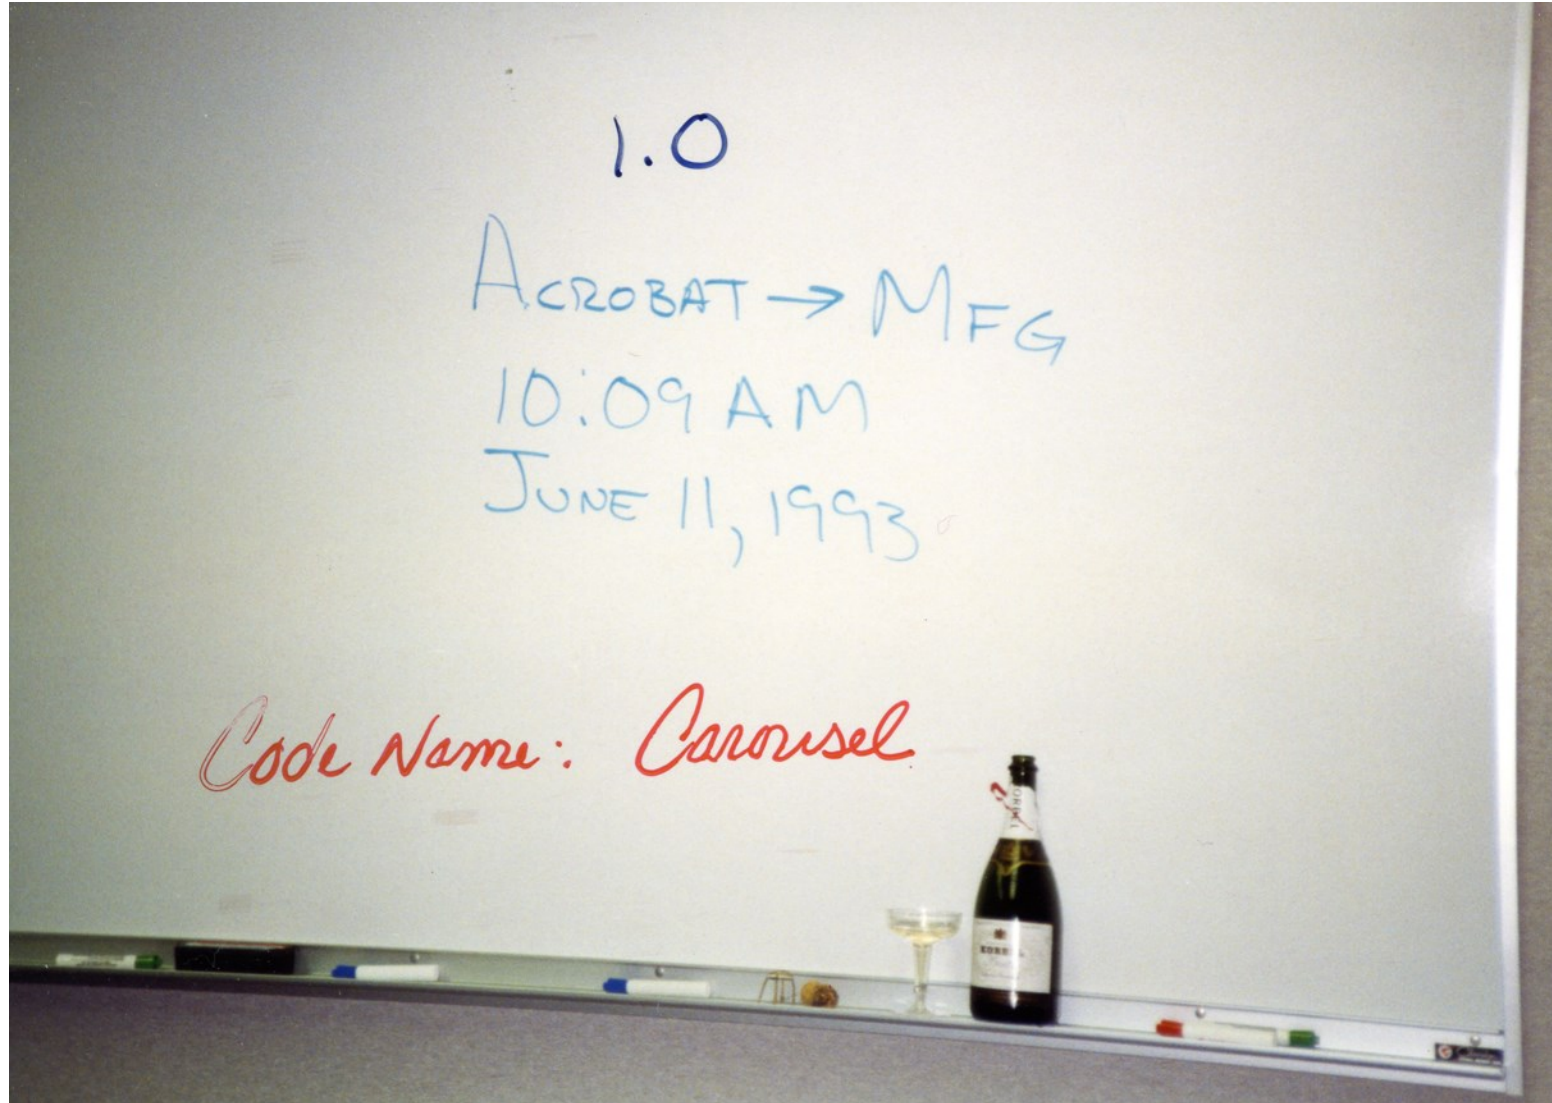 1.0
ACROBAT → MFG
10:09 AM
JUNE 11, 1993
Code Name: Carousel
KORBEL